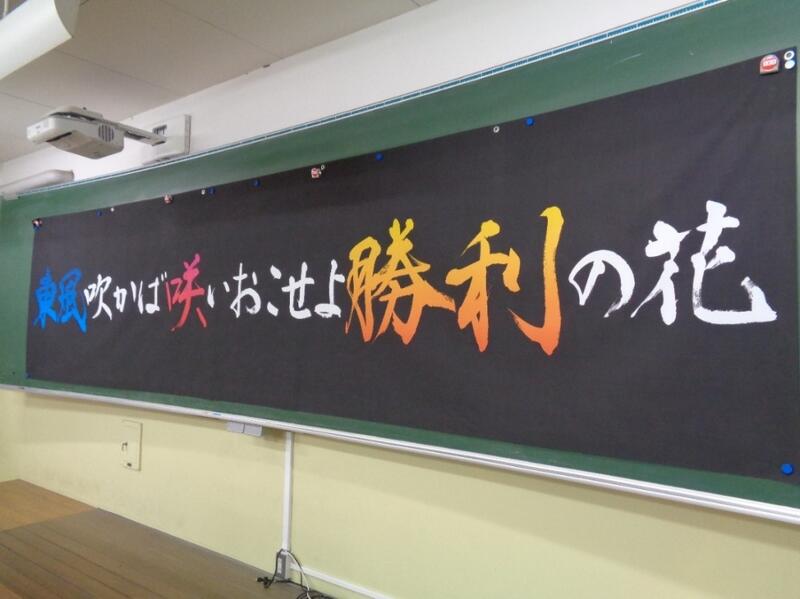 東風吹かば咲いおこせよ勝利の花